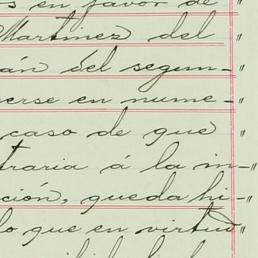 s en favor de "
Martinez del "
án del segun- "
erse en nume- "
caso de que "
traria á la in- "
ción, queda hi- "
lo que en virtud "